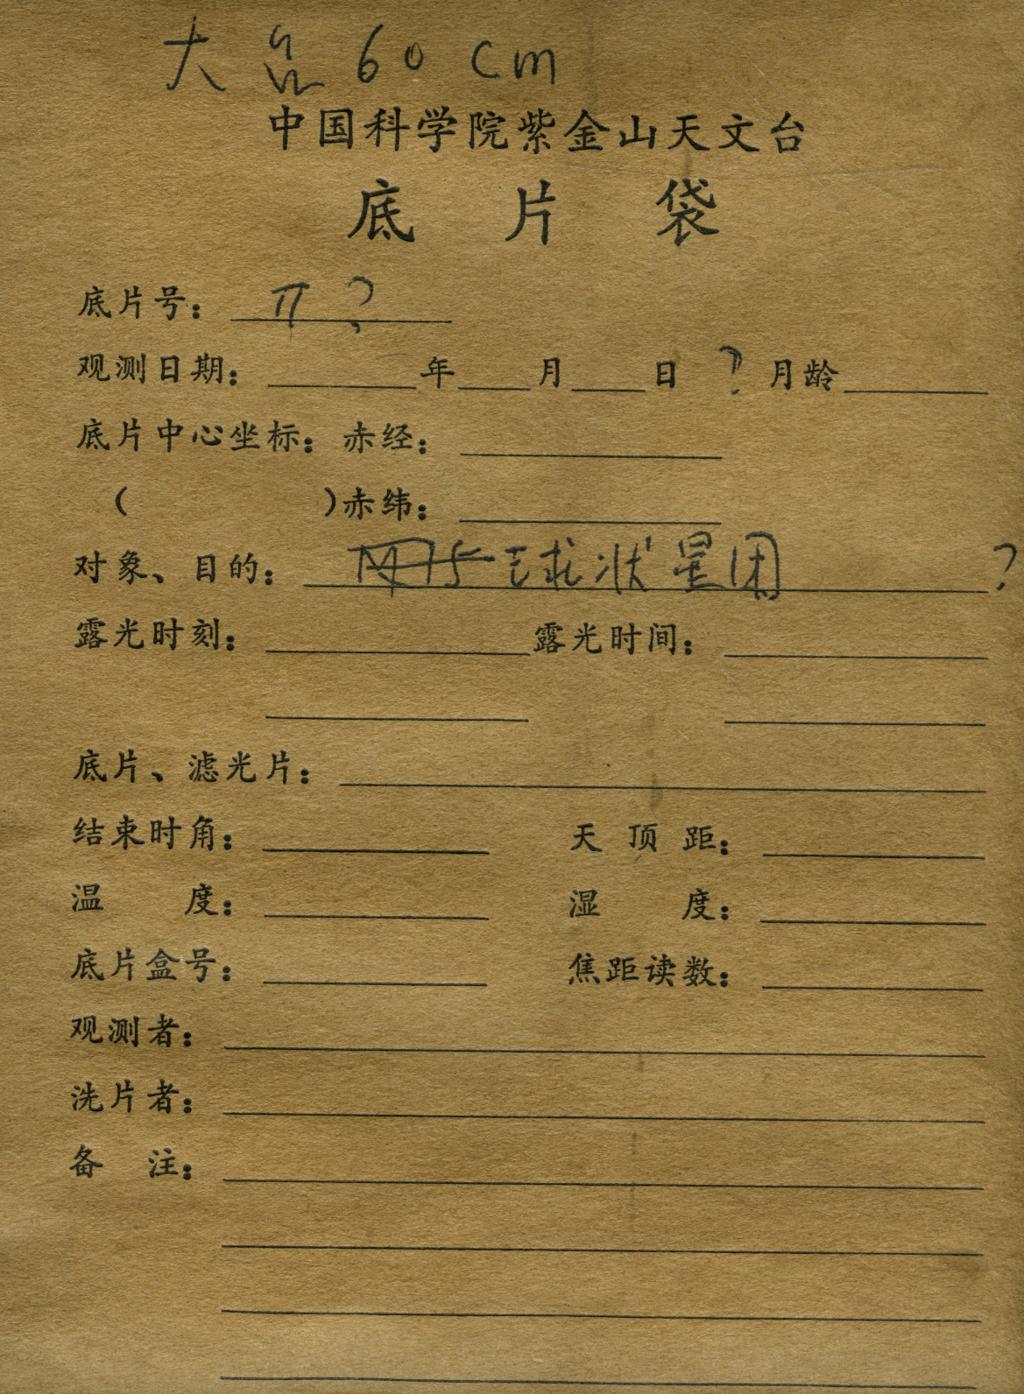 大 60 cm
中国科学院紫金山天文台
底 片 袋
底片号： ?
观测日期： 年 月 日 ? 月龄
底片中心坐标：赤经：
( )赤纬：
对象、目的： 球状星团 ?
露光时刻： 露光时间：
底片、滤光片：
结束时角： 天 顶 距：
温 度： 湿 度：
底片盒号： 焦距读数：
观测者：
洗片者：
备 注：